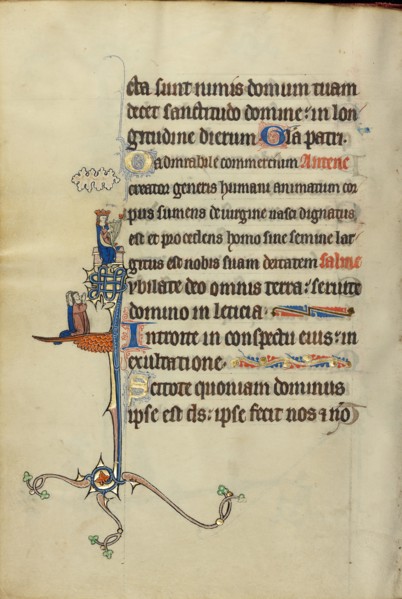 cta sunt nimis domum tuam
decet sanctitudo domine: in lon
gitudine dierum Gła patri.
O admirabile commercium Antene
creator generis humani animatum cor
pus sumens de uirgine nasci dignatus
est et procedens homo sine semine lar
gitus est nobis suam deitatem salme
ybilate deo omnis terra: seruite
domino in leticia
Introite in conspectu eius: in
exultatione
Scitote quoniam dominus
ipse est ds: ipse fecit nos ⁊ nō